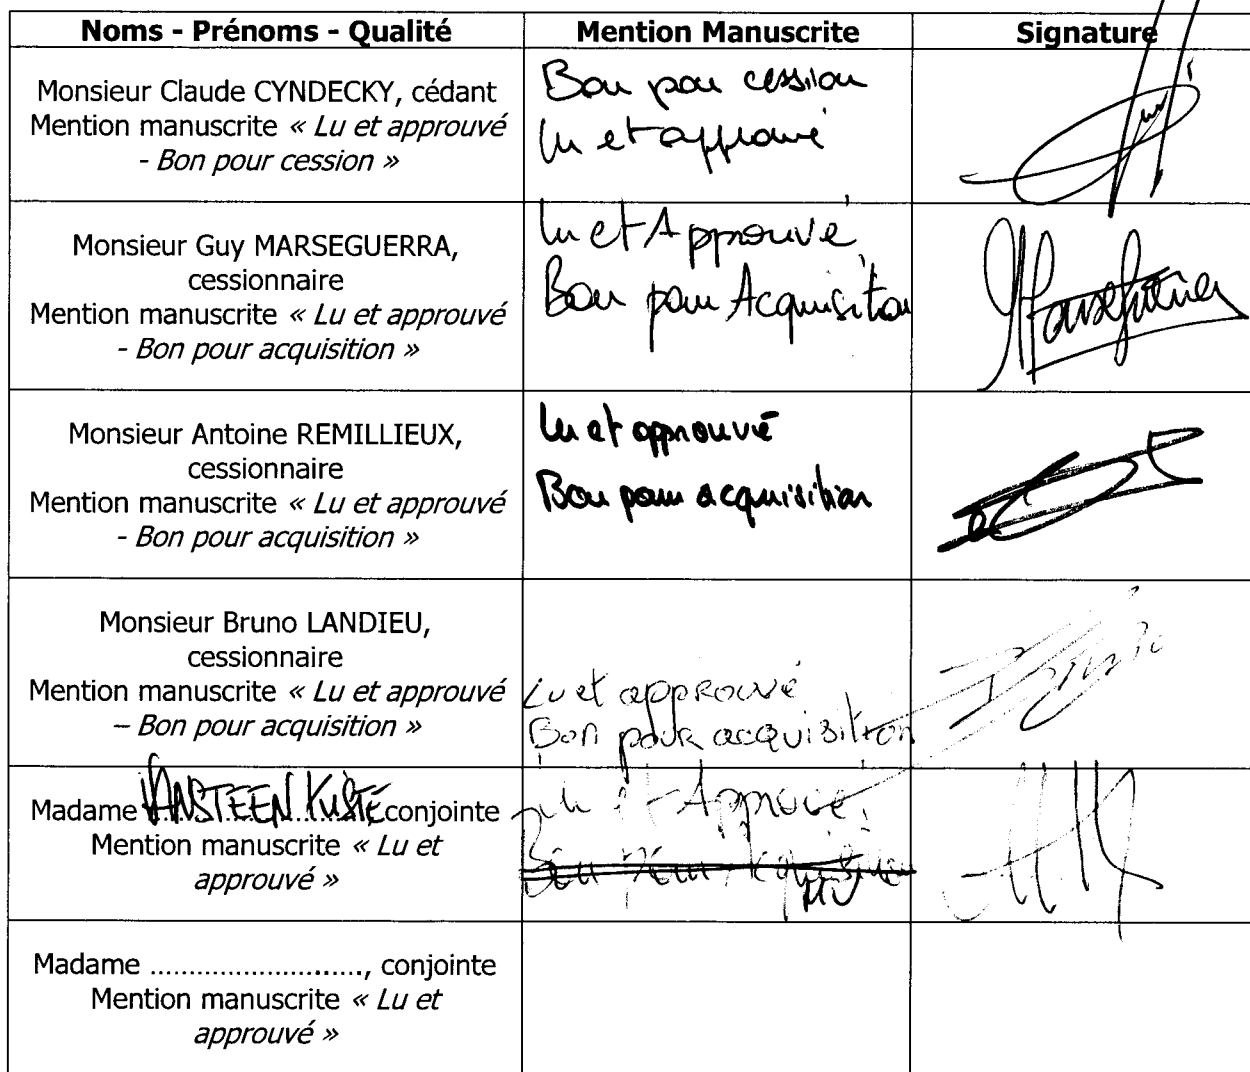 Noms - Prénoms - Qualité
Mention Manuscrite
Signature
Monsieur Claude CYNDECKY, cédant
Mention manuscrite « Lu et approuvé
- Bon pour cession »
Bon pour cession
lu et approuvé
Monsieur Guy MARSEGUERRA,
cessionnaire
Mention manuscrite « Lu et approuvé
- Bon pour acquisition »
lu et Approuvé
Bon pour Acquisition
Monsieur Antoine REMILLIEUX,
cessionnaire
Mention manuscrite « Lu et approuvé
- Bon pour acquisition »
Lu et approuvé
Bon pour acquisition
Monsieur Bruno LANDIEU,
cessionnaire
Mention manuscrite « Lu et approuvé
– Bon pour acquisition »
Lu et appRouvé
Bon pouR acquisition
Madame VANSTEENKISTE conjointe
Mention manuscrite « Lu et
approuvé »
Lu et Approuvé
Bon pour Acquisition
Madame ..........................., conjointe
Mention manuscrite « Lu et
approuvé »